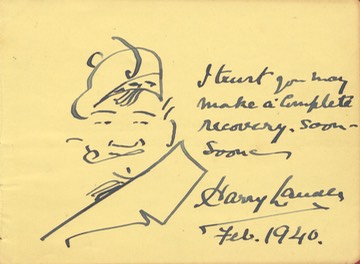 I trust you may
make a Complete
recovery. soon-
soon
Harry Lauder
Feb. 1940.